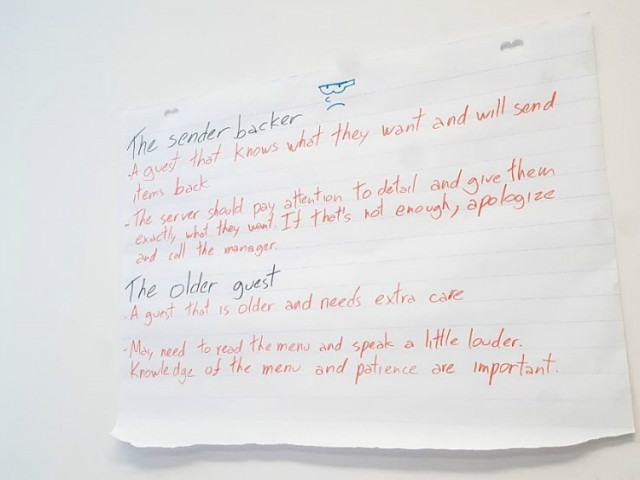 The sender backer
- A guest that knows what they want and will send
items back
- The server should pay attention to detail and give them
exactly what they want. If that's not enough, apologize
and call the manager.
The older guest
- A guest that is older and needs extra care
- May need to read the menu and speak a little louder.
Knowledge of the menu and patience are important.